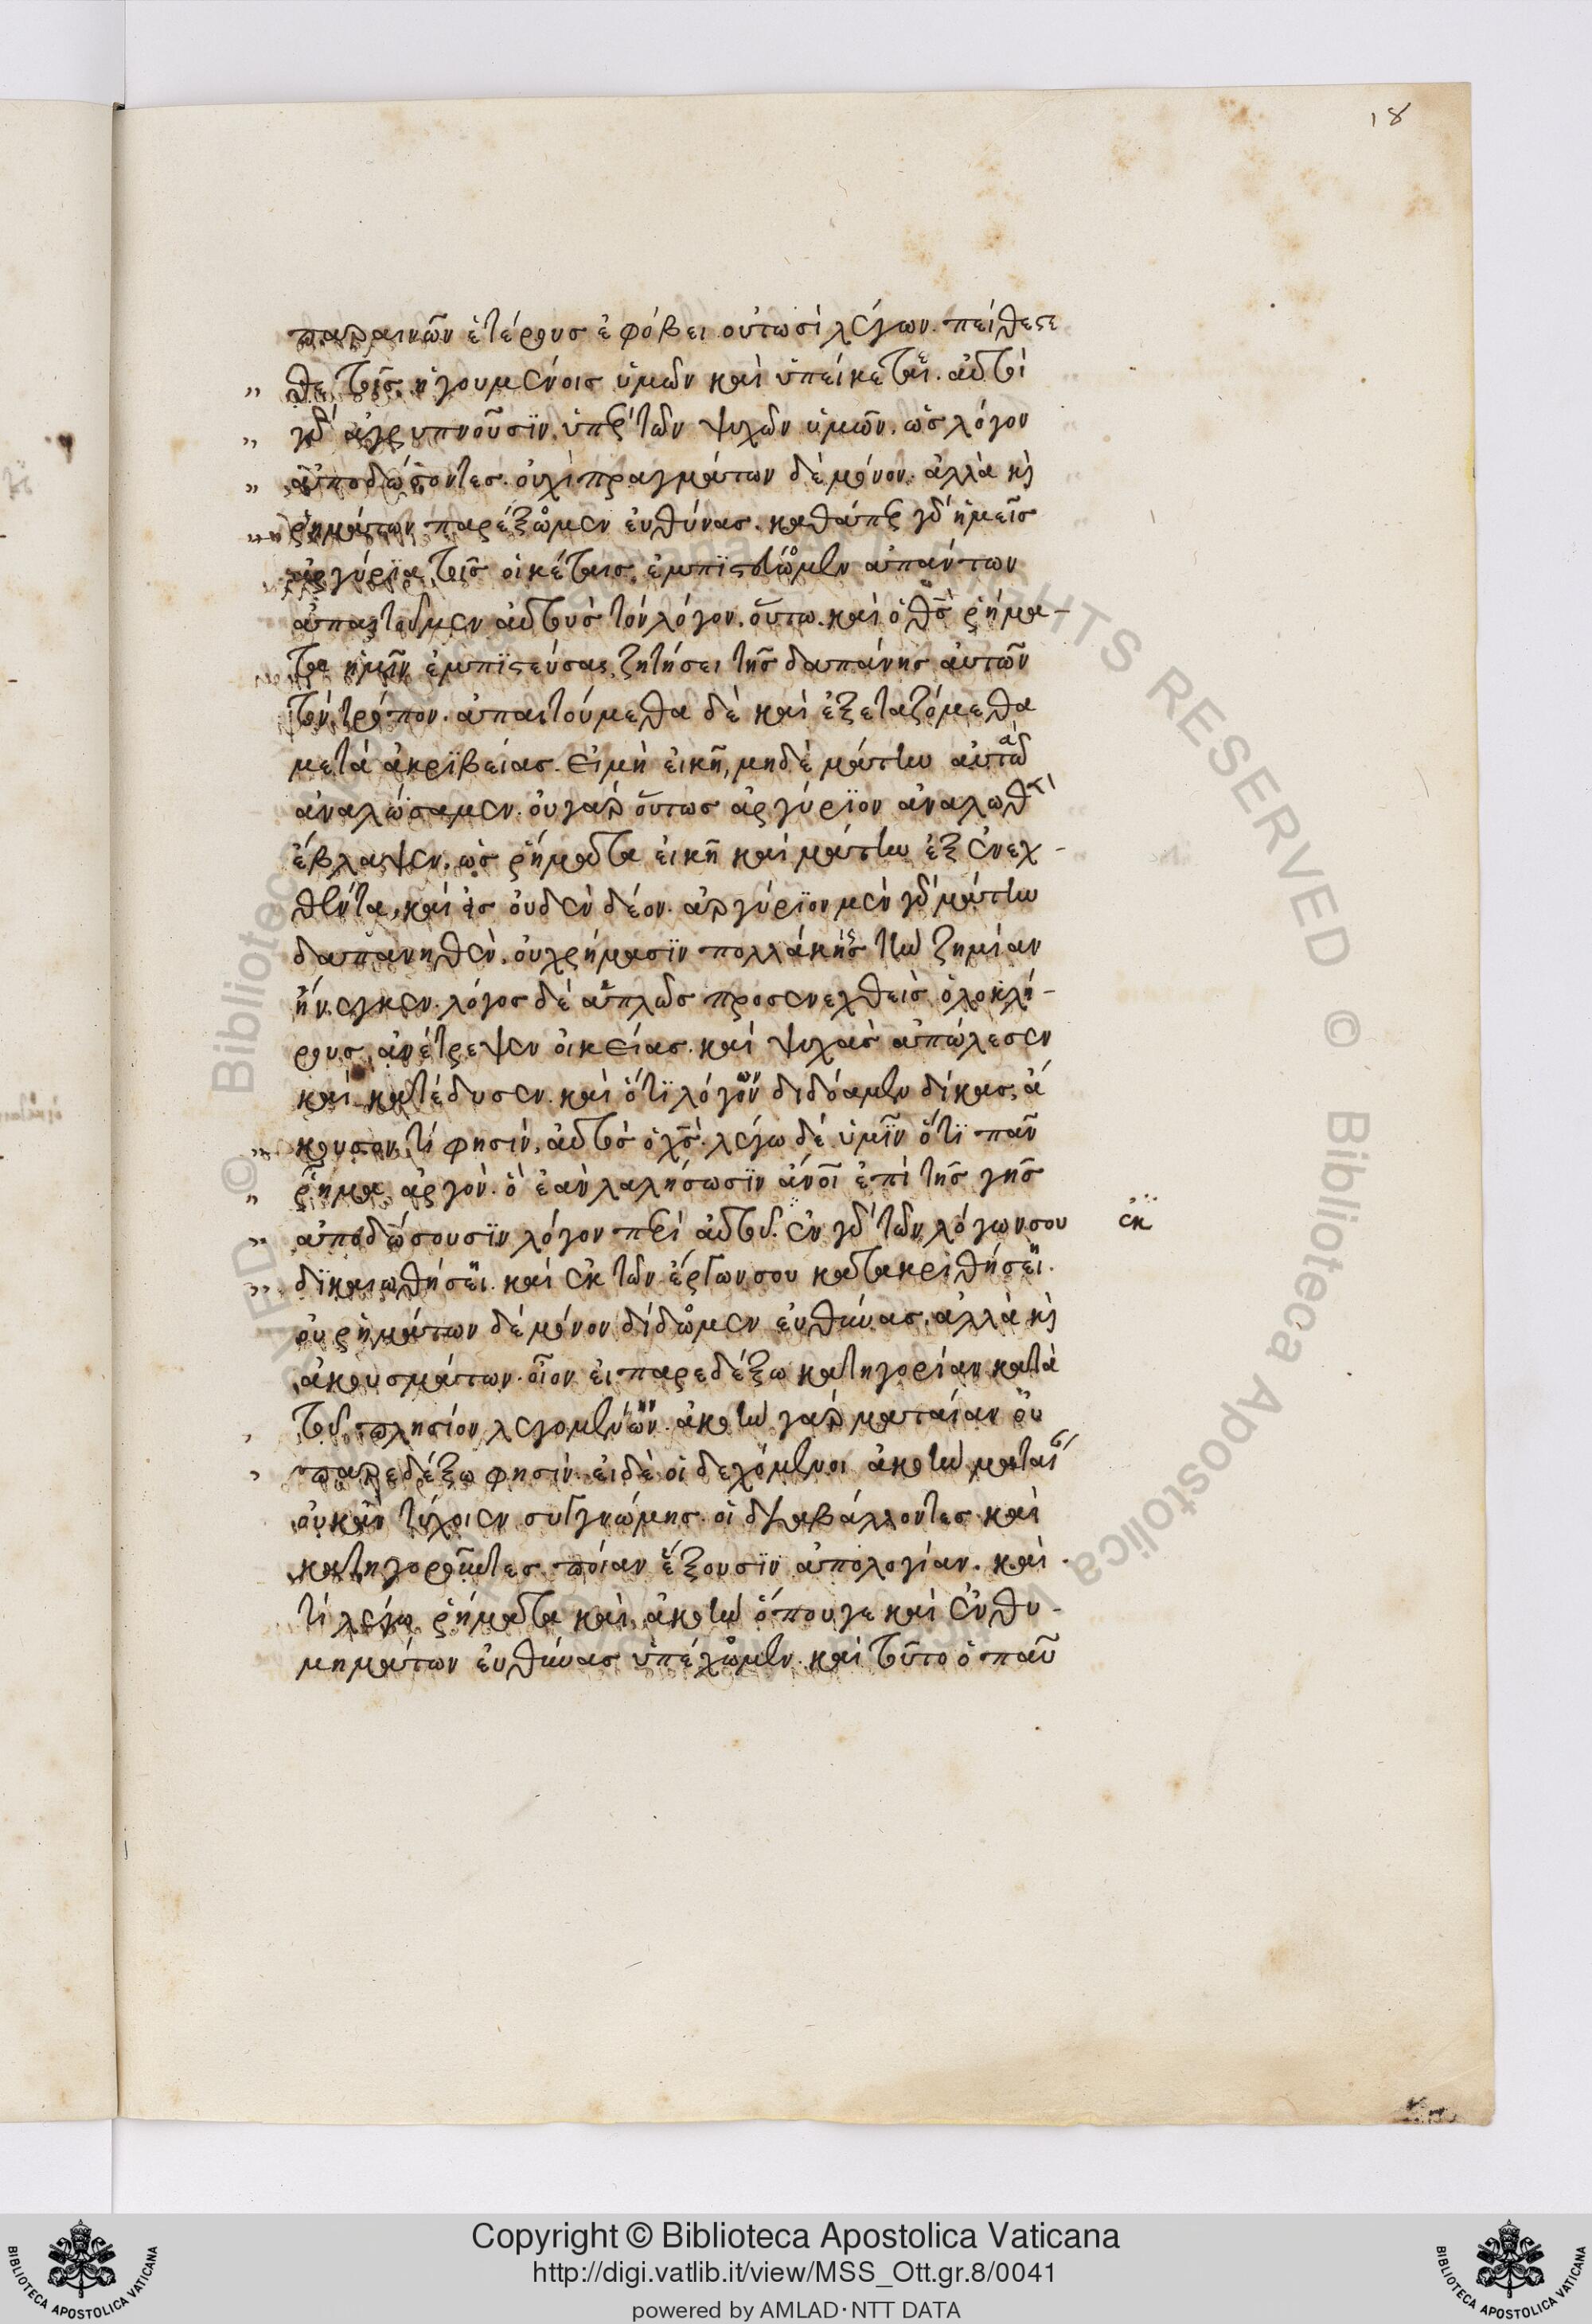 18
παραινῶν ἑτέρους ἐφόβει οὑτωσὶ λέγων. πείθεσε
θε τοῖς ἡγουμένοις ὑμῶν καὶ ὑπείκεται. αὐτοὶ
γὰρ ἀγρυπνοῦσϊν ὑπὲρ τῶν ψυχῶν ὑμῶν. ὡς λόγον
ἀποδώσοντες. οὐχὶ πραγμάτων δὲ μόνον. ἀλλὰ κὶ
ῥημάτων παρέξομεν εὐθύνας. καθάπερ γὰρ ἡμεῖς
ἀργύρϊα τοῖς οἰκέταις ἐμπϊστεύομεν ἁπάντων
ἀπαιτοῦμεν αὐτοὺς τὸν λόγον. οὕτω. καὶ ὁ θς ῥήμα-
τα ἡμῖν ἐμπϊστεύσας, ζητήσει τῆς δαπάνης αὐτῶν
τὸν τρόπον. ἀπαιτούμεθα δὲ καὶ ἐξεταζόμεθα
μετὰ ἀκρϊβείας. εἰ μὴ εἰκῆ, μηδὲ μάτην αὐτὰ
ἀναλώσαμεν. οὐ γὰρ οὕτως ἀργύρϊον ἀναλωθὲν
ἔβλαψεν. ὡς ῥήματα εἰκῆ καὶ μάτην ἐξενεχ-
θέντα, καὶ εἰς οὐδὲν δέον. ἀργύρϊον μὲν γὰρ μάτην
δαπανηθὲν. οὐ χρήμασϊν πολλάκις τὴν ζημίαν
ἤνεγκεν. λόγος δὲ ἁπλῶς προσενεχθεὶς ὁλοκλή-
ρους, ἀνέτρεψεν οἰκείας. καὶ ψυχὰς ἀπώλεσεν
καὶ κατέδυσεν. καὶ ὅτϊ λόγων διδόαμεν δίκας, ἄ
κουσον, τί φησίν, αὐτὸς ὁ χς. λέγω δὲ ὑμῖν ὅτϊ πᾶν
ῥῆμα ἀργὸν. ὃ ἐὰν λαλήσωσϊν ἄνοι ἐπὶ τῆς γῆς
ἀποδώσουσϊν λόγον περὶ αὐτοῦ. ἐν γὰρ τῶν λόγων σου
ἐκ
δϊκαιωθήσει. καὶ ἐκ τῶν ἔργων σου κατακριθήσει.
οὐ ῥημάτων δὲ μόνον δίδομεν εὐθύνας. ἀλλὰ κὶ
ἀκουσμάτων. οἷον εἰ παρεδέξω κατηγορίαν κατὰ
τοῦ πλησίον λεγομένην. ἀκοὴν γὰρ ματαίαν οὐ
παρεδέξω φησίν. εἰ δὲ οἱ δεχόμενοι ἀκοὴν ματαί
οὐκ ἂν τύχοιεν συγγνώμης. οἱ διαβάλλοντες καὶ
κατηγοροῦντες. ποίαν ἕξουσϊν ἀπολογίαν. καὶ
τί λέγω ῥήματα καὶ ἀκοὴν ὅπουγε καὶ ἐνθυ-
μημάτων εὐθύνας ὑπέχομεν. καὶ τοῦτο ὁ παῦ
Copyright © Biblioteca Apostolica Vaticana
http://digi.vatlib.it/view/MSS_Ott.gr.8/0041
powered by AMLAD·NTT DATA